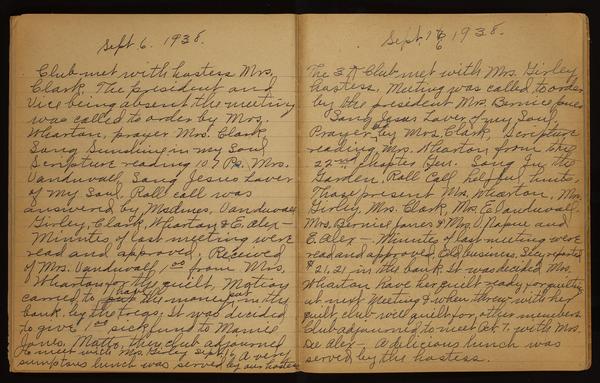 Sept. 6. 1938.
Club met with hostess Mrs.
Clark. The president and
Vice being absent the meeting
was called to order by Mrs.
Wharton, prayer Mrs. Clark,
Song Sunshine in my Soul
Scripture reading 107 Ps. Mrs.
Vanduvall, Song Jesus Lover
of My Soul. Roll call was
answered by Madmes, Vanduvall
Girley, Clark, Wharton & E. Alex—
Minutes of last meeting were
read and approved. Received
of Mrs. Vanduvall 1.00 from Mrs.
Wharton for the quilt, Motion
carried to put the money in the
bank. by the treas; It was decided
to give 1.00 sick fund to Mamie
Jones. Motto, then club adjourned
to meet with Mrs. Girley Sept. 16 A very
sumptous lunch was served by our hostess
Sept. 16 1938.
The 3 A Club met with Mrs. Girley
hostess. Meeting was called to order
by the president Mrs. Bernice Jones
Song Jesus Lover of my Soul,
Prayer by Mrs. Clark, Scripture
reading, Mrs. Wharton from the
22nd Chapter Gen. Song In the
Garden, Roll Call helpful hints,
Those present Mrs. Wharton, Mrs.
Girley, Mrs. Clark, Mrs. E. Vanduvall.
Mrs. Bernice Jones & Mrs. V. and
E. Alex — Minutes of last meeting were
read and approved. Old business. Secy reported
$21.21 in the bank. It was decided Mrs.
Wharton have her quilt ready for quilting
at next Meeting & when threw with her
quilt, club will quilt for other members.
Club adjourned to meet Oct 7. with Mrs.
Alex — A delicious lunch was
served by the hostess.